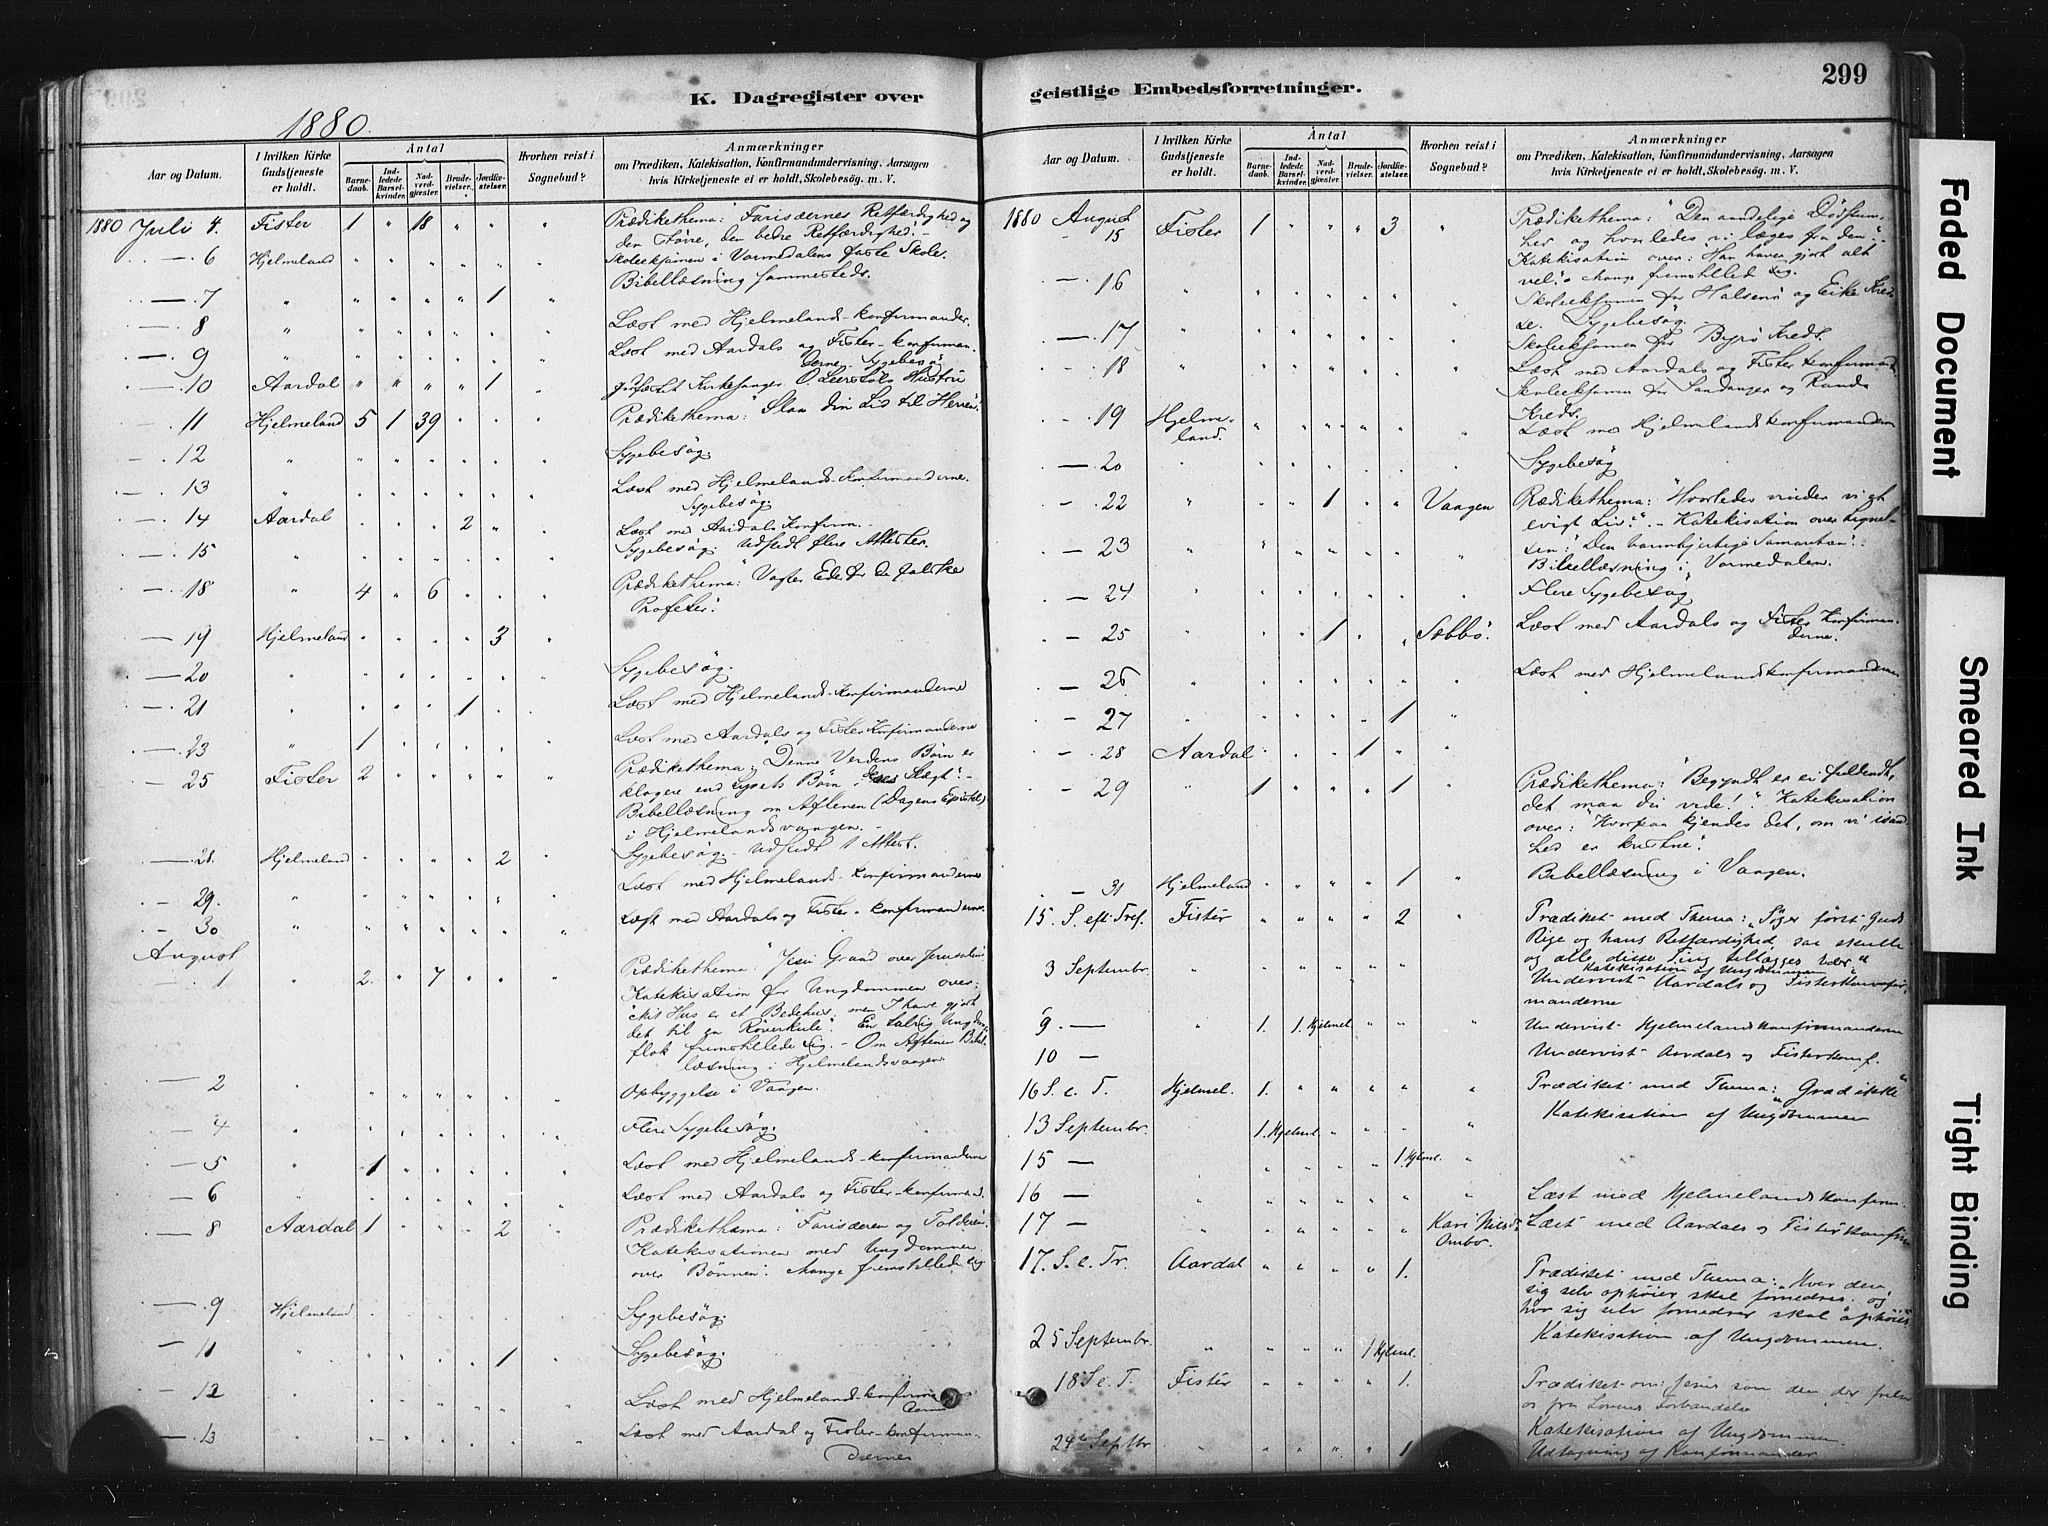 299
K. Dagregister over
geistlige Embedsforretninger.
1880.
Aar og Datum.
I hvilken Kirke Gudstjeneste er holdt.
Antal
Barnedaab.
Indledede Barselkvinder.
Nadverdgjester.
Brudevielser.
Jordfæstelser.
Hvorhen reist i Sognebud?
Anmærkninger
om Prædiken, Katekisation, Konfirmandundervisning, Aarsagen
hvis Kirketjeneste ei er holdt, Skolebesög. m. V.
1880 Juli 4. Fister 1 " 18 " " " Prædikethema: "Farisæernes Retfærdighed og
den større, den bedre Retfærdighed". -
— 6 Hjelmeland " " " " " " Skoleeksamen i Vormedalens faste Skole.
Bibellæsning sammesteds.
— 7 " " " " " 1 "
— 8 " " " " " " " Læst med Hjelmelands-konfirmander.
— 9 " " " " " " " Læst med Aardals og Fister-konfirman-
derne. Sygebesøg
— 10 Aardal " " " " 1 " Jordfæstet Kirkesanger O. Hustru
— 11 Hjelmeland 5 1 39 " " " Prædikethema: "Slaa din Lid til Herren".
— 12 " " " " " " " Sygebesøg.
— 13 " " " " " " " Læst med Hjelmelands-Konfirmanderne.
Sygebesøg.
— 14 Aardal " " " 2 " " Læst med Aardals Konfirm.
— 15 " " " " " " " Sygebesøg. Udstedt flere Attester.
— 18 " 4 " 6 " " " Prædikethema: "Vogter Eder for de falske
Profeter".
— 19 Hjelmeland " " " " 3 "
— 20 " " " " " " Sygebesøg.
— 21 " " " " 1 " Læst med Hjelmelands-Konfirmanderne
— 23 " 1 " " " " Læst med Aardals og Fister Konfirmanderne
— 25 Fister 2 " " " " " Prædikethema: "Denne Verdens Børn er
klogere end Lysets Børn i deres Slægt". -
Bibellæsning om Aftenen (Dagens Epistel)
i Hjelmelandsvangen. -
— 28. Hjelmeland " " " " 2 " Sygebesøg. - Udstedt 1 Attest.
— 29. " " " " " " Læst med Hjelmelands-Konfirmanderne
— 30 " " " " " " " Læst med Aardals og Fister-konfirmanderne.
August
— 1 " 2. " 7 " " " Prædikethema: "Jesu Graad over Jerusalem".
Katekisation for Ungdommen over:
"Mit Hus er et Bedehus, men I have gjort
det til en Røverkule". En talrig Ungdoms-
flok fremstillede sig. - Om Aftenen Bibel-
læsning i Hjelmelandsvaagen.
— 2 " " " " " " Opbyggelse i Vaagen.
— 4 " " " " " " Flere Sygebesøg.
— 5 " 1 " " " " " Læst med Hjelmelands-konfirmanderne
— 6 " " " " " " " Læst med Aardals og Fister-konfirmand.
— 8 Aardal 1 " " " 2 " Prædikethema: "Farisæeren og Tolderen".
Katekisationen med Ungdommen
over "Bønnen". Mange fremstillede sig
— 9 Hjelmeland " " " " " " Sygebesøg.
— 11 " " " " " 1 " Sygebesøg.
— 12 " " " " " " " Læst med Hjelmelands-konfirman-
derne
— 13 " " " " " " " Læst med Aardal og Fister-konfirman-
derne
Aar og Datum.
I hvilken Kirke Gudstjeneste er holdt.
Antal
Barnedaab.
Indledede Barselkvinder.
Nadverdgjester.
Brudevielser.
Jordfæstelser.
Hvorhen reist i Sognebud?
Anmærkninger
om Prædiken, Katekisation, Konfirmandundervisning, Aarsagen
hvis Kirketjeneste ei er holdt, Skolebesög. m. V.
1880 August
15 Fister 1 " " " 3 " Prædikethema: "Den aandelige Døvstum-
hed og hvorledes vi læges fra den". -
Katekisation over: "Han haver gjort alt
vel". Mange fremstilled sig.
— 16 " " " " " " " Skoleeksamen for Halsenø og Eike Kred-
se. Sygebesøg.
— 17 " " " " " " " Skoleeksamen for Byrø Kreds.
— 18 " " " " " " " Læst med Aardals og Fister konfirmand.
Skoleeksamen for Sandanger og Randø
Kreds.
— 19 Hjelme-
land. " " " " " " Læst med Hjelmelands konfirmanderne
— 20 " " " " " " " Sygebesøg
— 22 " " " 1 " " Vaagen Prædikethema: "Hvorledes vinder vi et
evigt Liv?". - Katekisation over Lignel-
sen: "Den barmhjertige Samaritan".
— 23 " " " " " " " Bibellæsning i Vormedalen.
— 24 " " " " " " " Flere Sygebesøg
— 25 " " " 1 " " Sæbbø. Læst med Aardals og Fister Konfirman-
derne.
— 26 " " " " " " " Læst med Hjelmelandskonfirmanderne
— 27 " " " " " 1 "
— 28 Aardal " " " 1 " "
— 29 " 1 " " " 1 " Prædikethema: "Begyndt er ei fuldendt,
det maa du vide!". Katekisation
over: "Hvorpaa kjendes det, om vi i sand-
hed er kristne".
— 31 Hjelmeland " " " " 1 " Bibellæsning i Vaagen.
15. S. eft. Tref. Fister " " " " 2 " Prædiket med Thema: "Søger først Guds
Rige og hans Retfærdighed, saa skulle
og alle disse Ting tillægges Eder"
Katekisation af Ungdommen
3 Septembr. " " " " " " " Undervist Aardals og Fister Konfir-
manderne
9 — " 1. 1. Hjelmel. " " " " Undervist Hjelmelandskonfirmanderne
10 — Undervist Aardals og Fisterkonf.
16 S. e. T. Hjelmel. 1. " " " " " Prædiket med Thema: "Græd ikke"
Katekisation af Ungdommen
13 Septembr. 1. Hjelmel. " " " "
15 — " " " " 1. Hjelmel. "
16 — " " " " " " " Læst med Hjelmelandskonfirm.
17 — " " " " " " Kari Nilsd. Ombo. Læst med Aardals og Fisterkonfirm
17. S. e. Tr. Aardal " " " " 1. Prædiket med Thema: "Hver den
sig selv ophøier skal fornedres, og
hvo sig selv fornedrer skal ophøies"
Katekisation af Ungdommen.
25 Septembr. " " " " 1 Hjelmel.
18 S. e. T. Fister " " " " 1. Prædiket om: Jesus som den, der frelser
os fra Lovens Forbandelse
Katekisation af Ungdommen
24de Septbr " " " " " 1 Udtagning af Konfirmander
Faded Document
Smeared Ink
Tight Binding